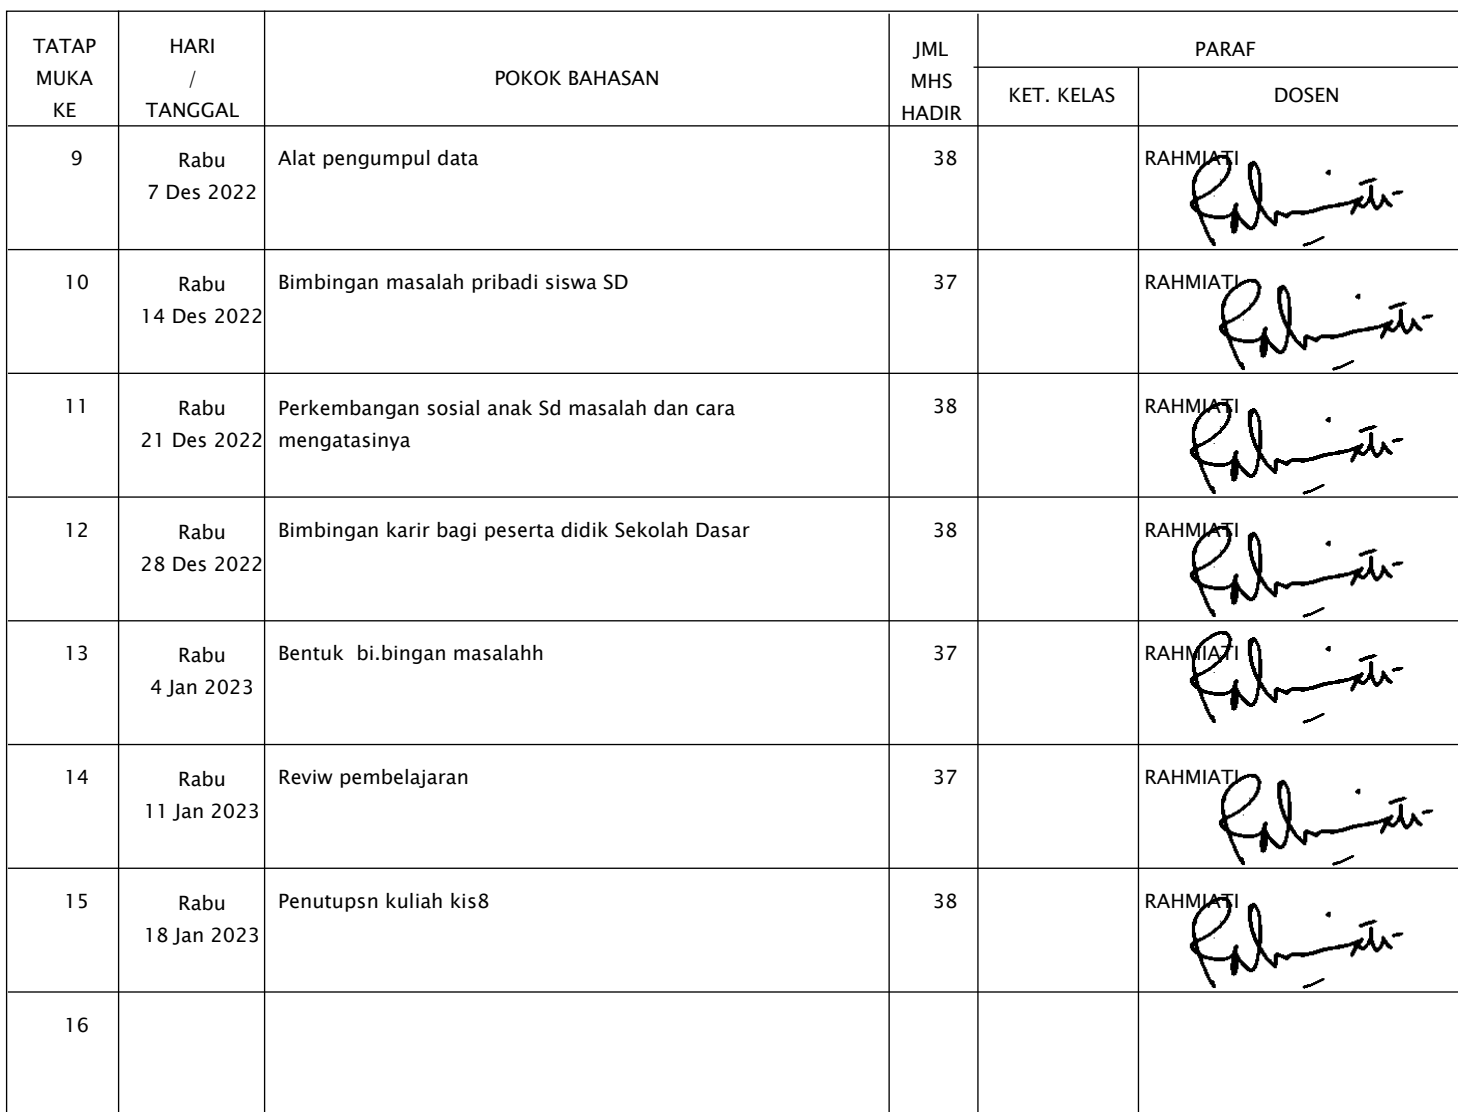 TATAP MUKA KE
HARI / TANGGAL
POKOK BAHASAN
JML MHS HADIR
PARAF
KET. KELAS
DOSEN
9
Rabu
7 Des 2022
Alat pengumpul data
38
RAHMIATI
10
Rabu
14 Des 2022
Bimbingan masalah pribadi siswa SD
37
RAHMIATI
11
Rabu
21 Des 2022
Perkembangan sosial anak Sd masalah dan cara
mengatasinya
38
RAHMIATI
12
Rabu
28 Des 2022
Bimbingan karir bagi peserta didik Sekolah Dasar
38
RAHMIATI
13
Rabu
4 Jan 2023
Bentuk  bi.bingan masalahh
37
RAHMIATI
14
Rabu
11 Jan 2023
Reviw pembelajaran
37
RAHMIATI
15
Rabu
18 Jan 2023
Penutupsn kuliah kis8
38
RAHMIATI
16